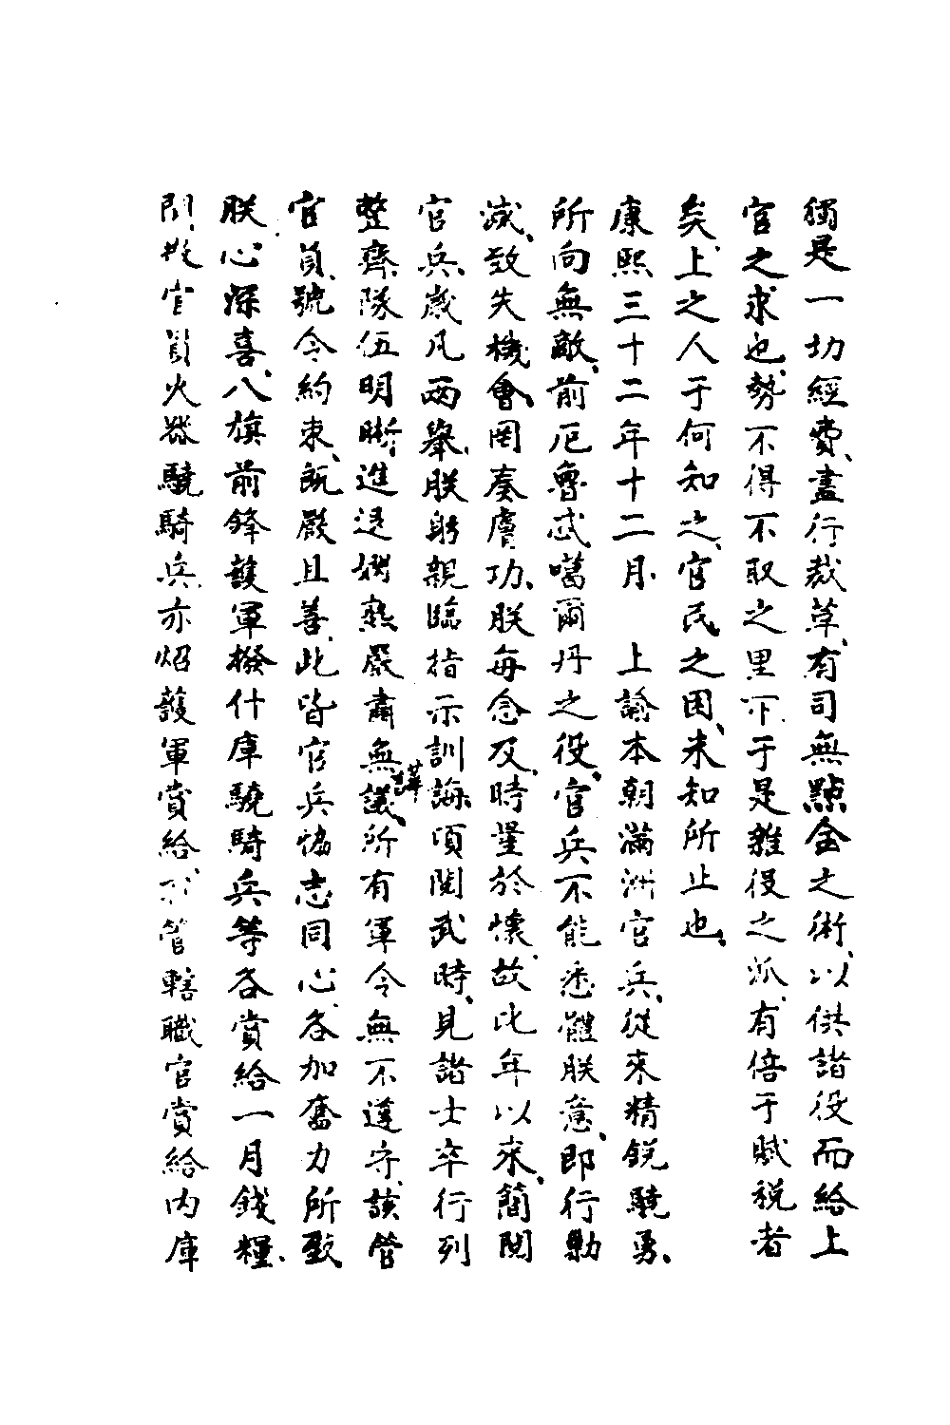 獨是一切經費、盡行裁革、有司無點金之術、以供諸役而給上
官之求也、勢不得不取之里下、于是雜役之派、有倍于賦稅者
矣、上之人于何知之、官民之困、未知所止也、
康熙三十二年十二月 上諭本朝滿洲官兵、從來精銳驍勇、
所向無敵、前厄魯忒噶爾丹之役、官兵不能悉體朕意、即行勦
滅、致失機會、罔奏膚功、朕每念及、時堇於懷、故此年以來、簡閱
官兵、歲凡兩舉、朕躬親臨指示訓誨、頃閱武時、見諸士卒行列
整齊隊伍明晰、進退嫻熟嚴肅無譁、所有軍令無不遵守、該管
官員、號令約束、既嚴且善、此皆官兵協志同心、各加奮力所致、
朕心深喜、八旗前鋒護軍撥什庫驍騎兵等各賞給一月錢糧、
閒散官員火器驍騎兵、亦炤護軍賞給、不管轄職官賞給內庫